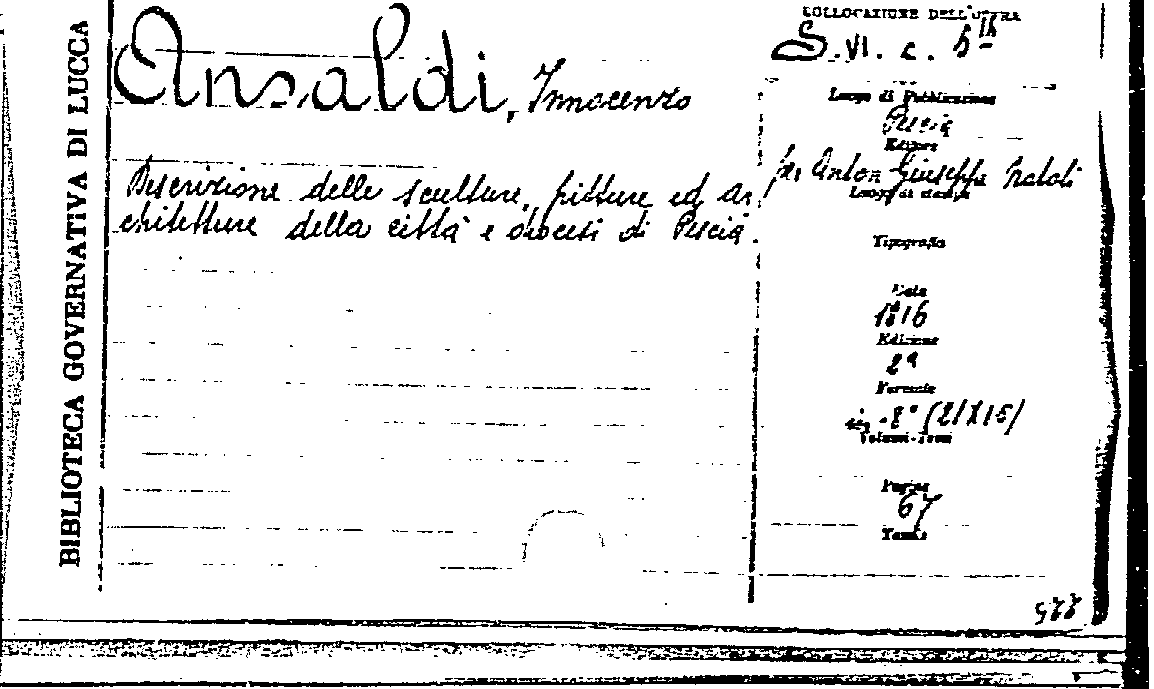 BIBLIOTECA GOVERNATIVA DI LUCCA
Ansaldi, Innocenzo
Descrizione delle sculture, pitture ed ar,
chitetture della città e diocesi di Pescia.
COLLOCAZIONE DELL'OPERA
S. VI. c. 5
Luogo di Pubblicazione
Pescia
Editore
per Anton Giuseppe Natali
Luogo di stampa
Tipografia
Data
1816
Edizione
2ª
Formato
in-8° (21X15)
Volumi-Tomi
Pagine
67
Tavole